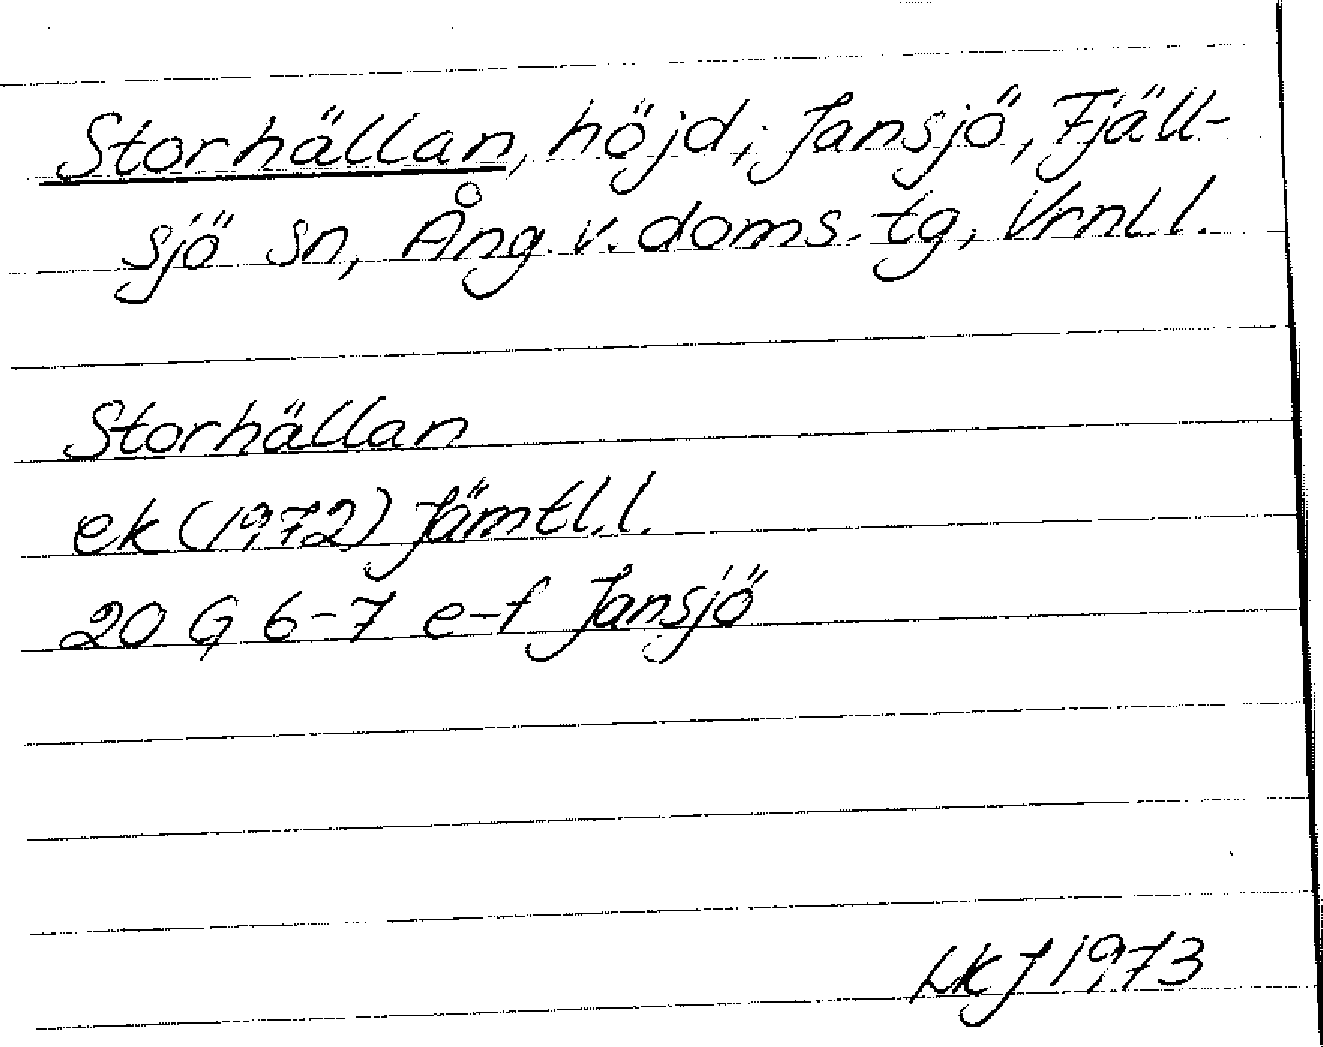 Storhällan, höjd; Jansjö, Fjäll-
sjö sn, Ång. v. doms. tg, Vrnl l.
Storhällan
ek (1972) Jämtl. l.
20 G 6-7 e-f Jansjö
LKJ 1973